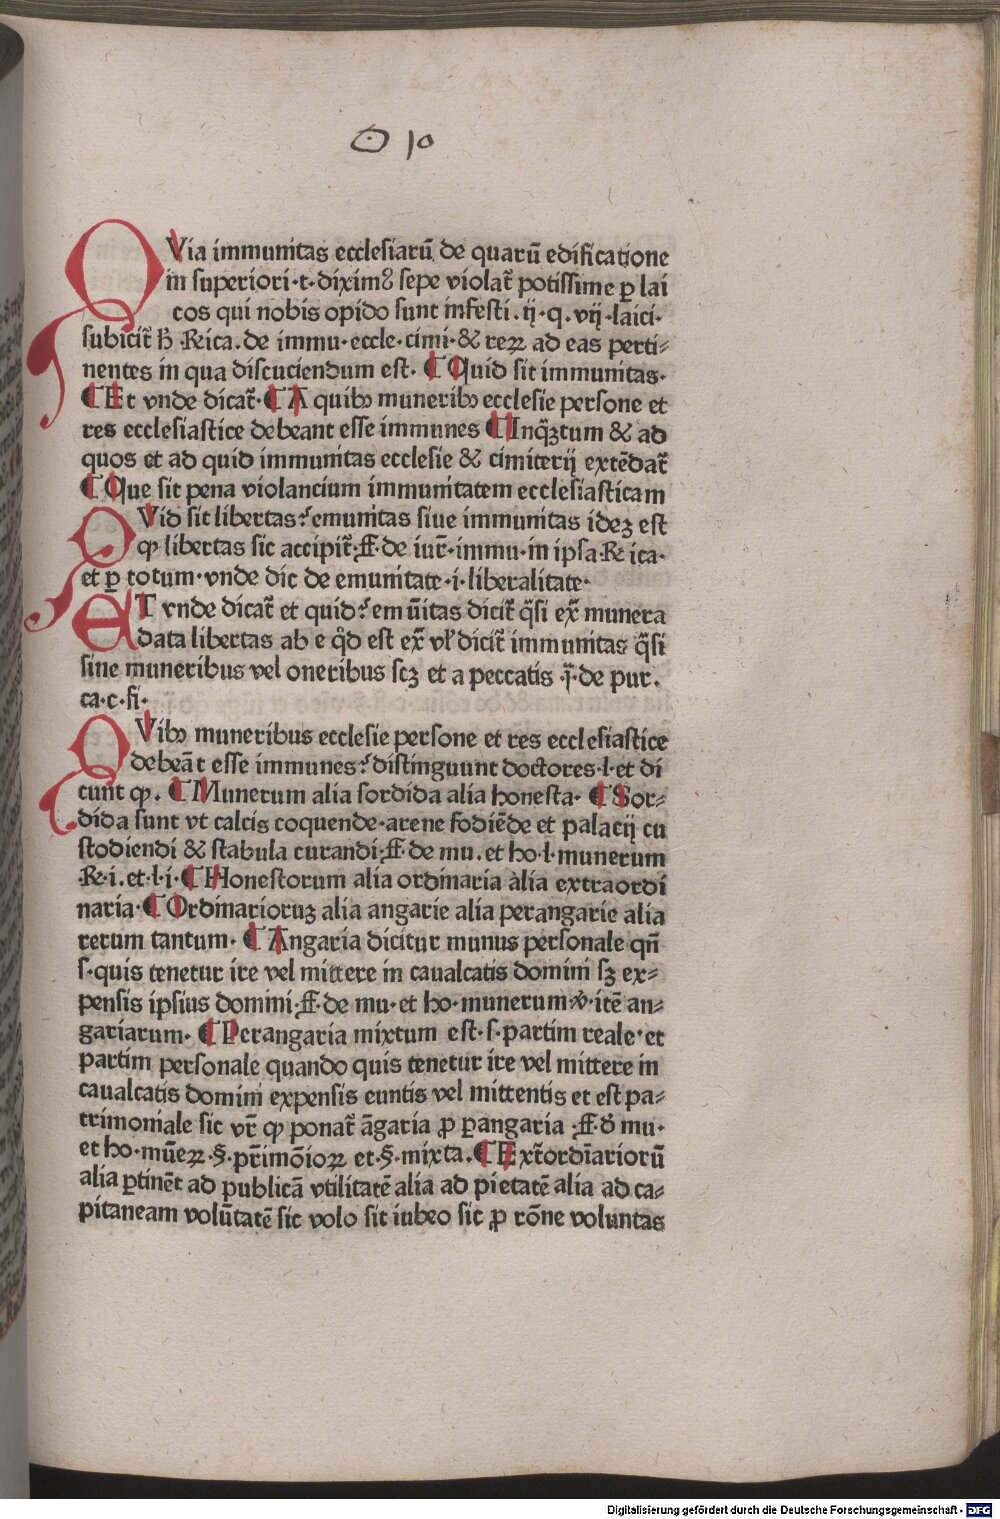 O 10
QVia immunitas ecclesiarū de quarū edificatione
in superiori·t·diximꝰ sepe violat᷑ potissime ꝑ lai
cos qui nobis opido sunt infesti.ij·q.vij·laici·
subicit᷑ ℏ Rica.de immu·eccle·cimi·& reꝝ ad eas perti⸗
nentes in qua discuciendum est· ¶Quid sit immunitas·
¶Et vnde dicat᷑·¶A quibꝫ muneribꝫ ecclesie persone et
res ecclesiastice debeant esse immunes ¶Inqꝫtum & ad
quos et ad quid immunitas ecclesie & cimiterij extēdat᷑
¶Que sit pena violancium immunitatem ecclesiasticam
QVid sit libertas?emunitas siue immunitas ideꝫ est
ꝙ libertas sic accipit᷑·ff·de iur̄·immu·in ipsa Rica·
et ꝑ totum·vnde dic de emunitate·i·liberalitate·
ET vnde dicat᷑ et quid?emūitas dicit᷑ q̄si ex̄ munera
data libertas ab e qd̊ est ex̄ vl̛ dicit᷑ immunitas q̄si
sine muneribus vel oneribus scꝫ et a peccatis ·j̄·de pur.
ca·c·fi·
QVibꝫ muneribus ecclesie persone et res ecclesiastice
debeāt esse immunes?distinguunt doctores·l·et di
cunt ꝙ. ¶Munerum alia sordida alia honesta· ¶Sor⸗
dida sunt vt calcis coquende·arene fodiēde et palacij cu
stodiendi & stabula curandi·ff·de mu.et ho·l·munerum
·R·i.et·l·i·¶Honestorum alia ordinaria alia extraordi
naria·¶Ordinarioruꝫ alia angarie alia perangarie alia
rerum tantum· ¶Angaria dicitur munus personale qn̄
s·quis tenetur ire vel mittere in caualcatis domini sꝫ ex⸗
pensis ipsius domini·ff·de mu·et ho·munerum·ꝟ·itē an⸗
gariarum· ¶Perangaria mixtum est·s·partim reale·et
partim personale quando quis tenetur ire vel mittere in
caualcatis domini expensis euntis vel mittentis et est pa⸗
trimoniale sic vr̄ ꝙ ponat᷑ āgaria ꝓ ꝑangaria ·ff·đ mu·
et ho·mūeꝝ·§·pr̄imōioꝝ et·§·mixta.¶Ext᷑ordīariorū
alia ꝑtinēt ad publicā vtilitatē alia ad pietatē alia ad ca⸗
pitaneam volūtatē sic volo sit iubeo sic ꝓ rōne voluntas
Digitalisierung gefördert durch die Deutsche Forschungsgemeinschaft - DFG